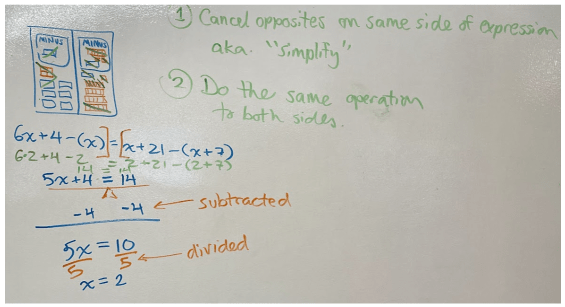 MINUS MINUS
1) Cancel opposites on same side of expression
aka. "simplify"
2) Do the same operation
to both sides.
6x+4-(x)]=[x+21-(x+7)
6·2+4-2 = 2+21-(2+7)
14 = 14
5x+4 = 14
-4 -4 ← subtracted
5x = 10
5 5 ← divided
x = 2